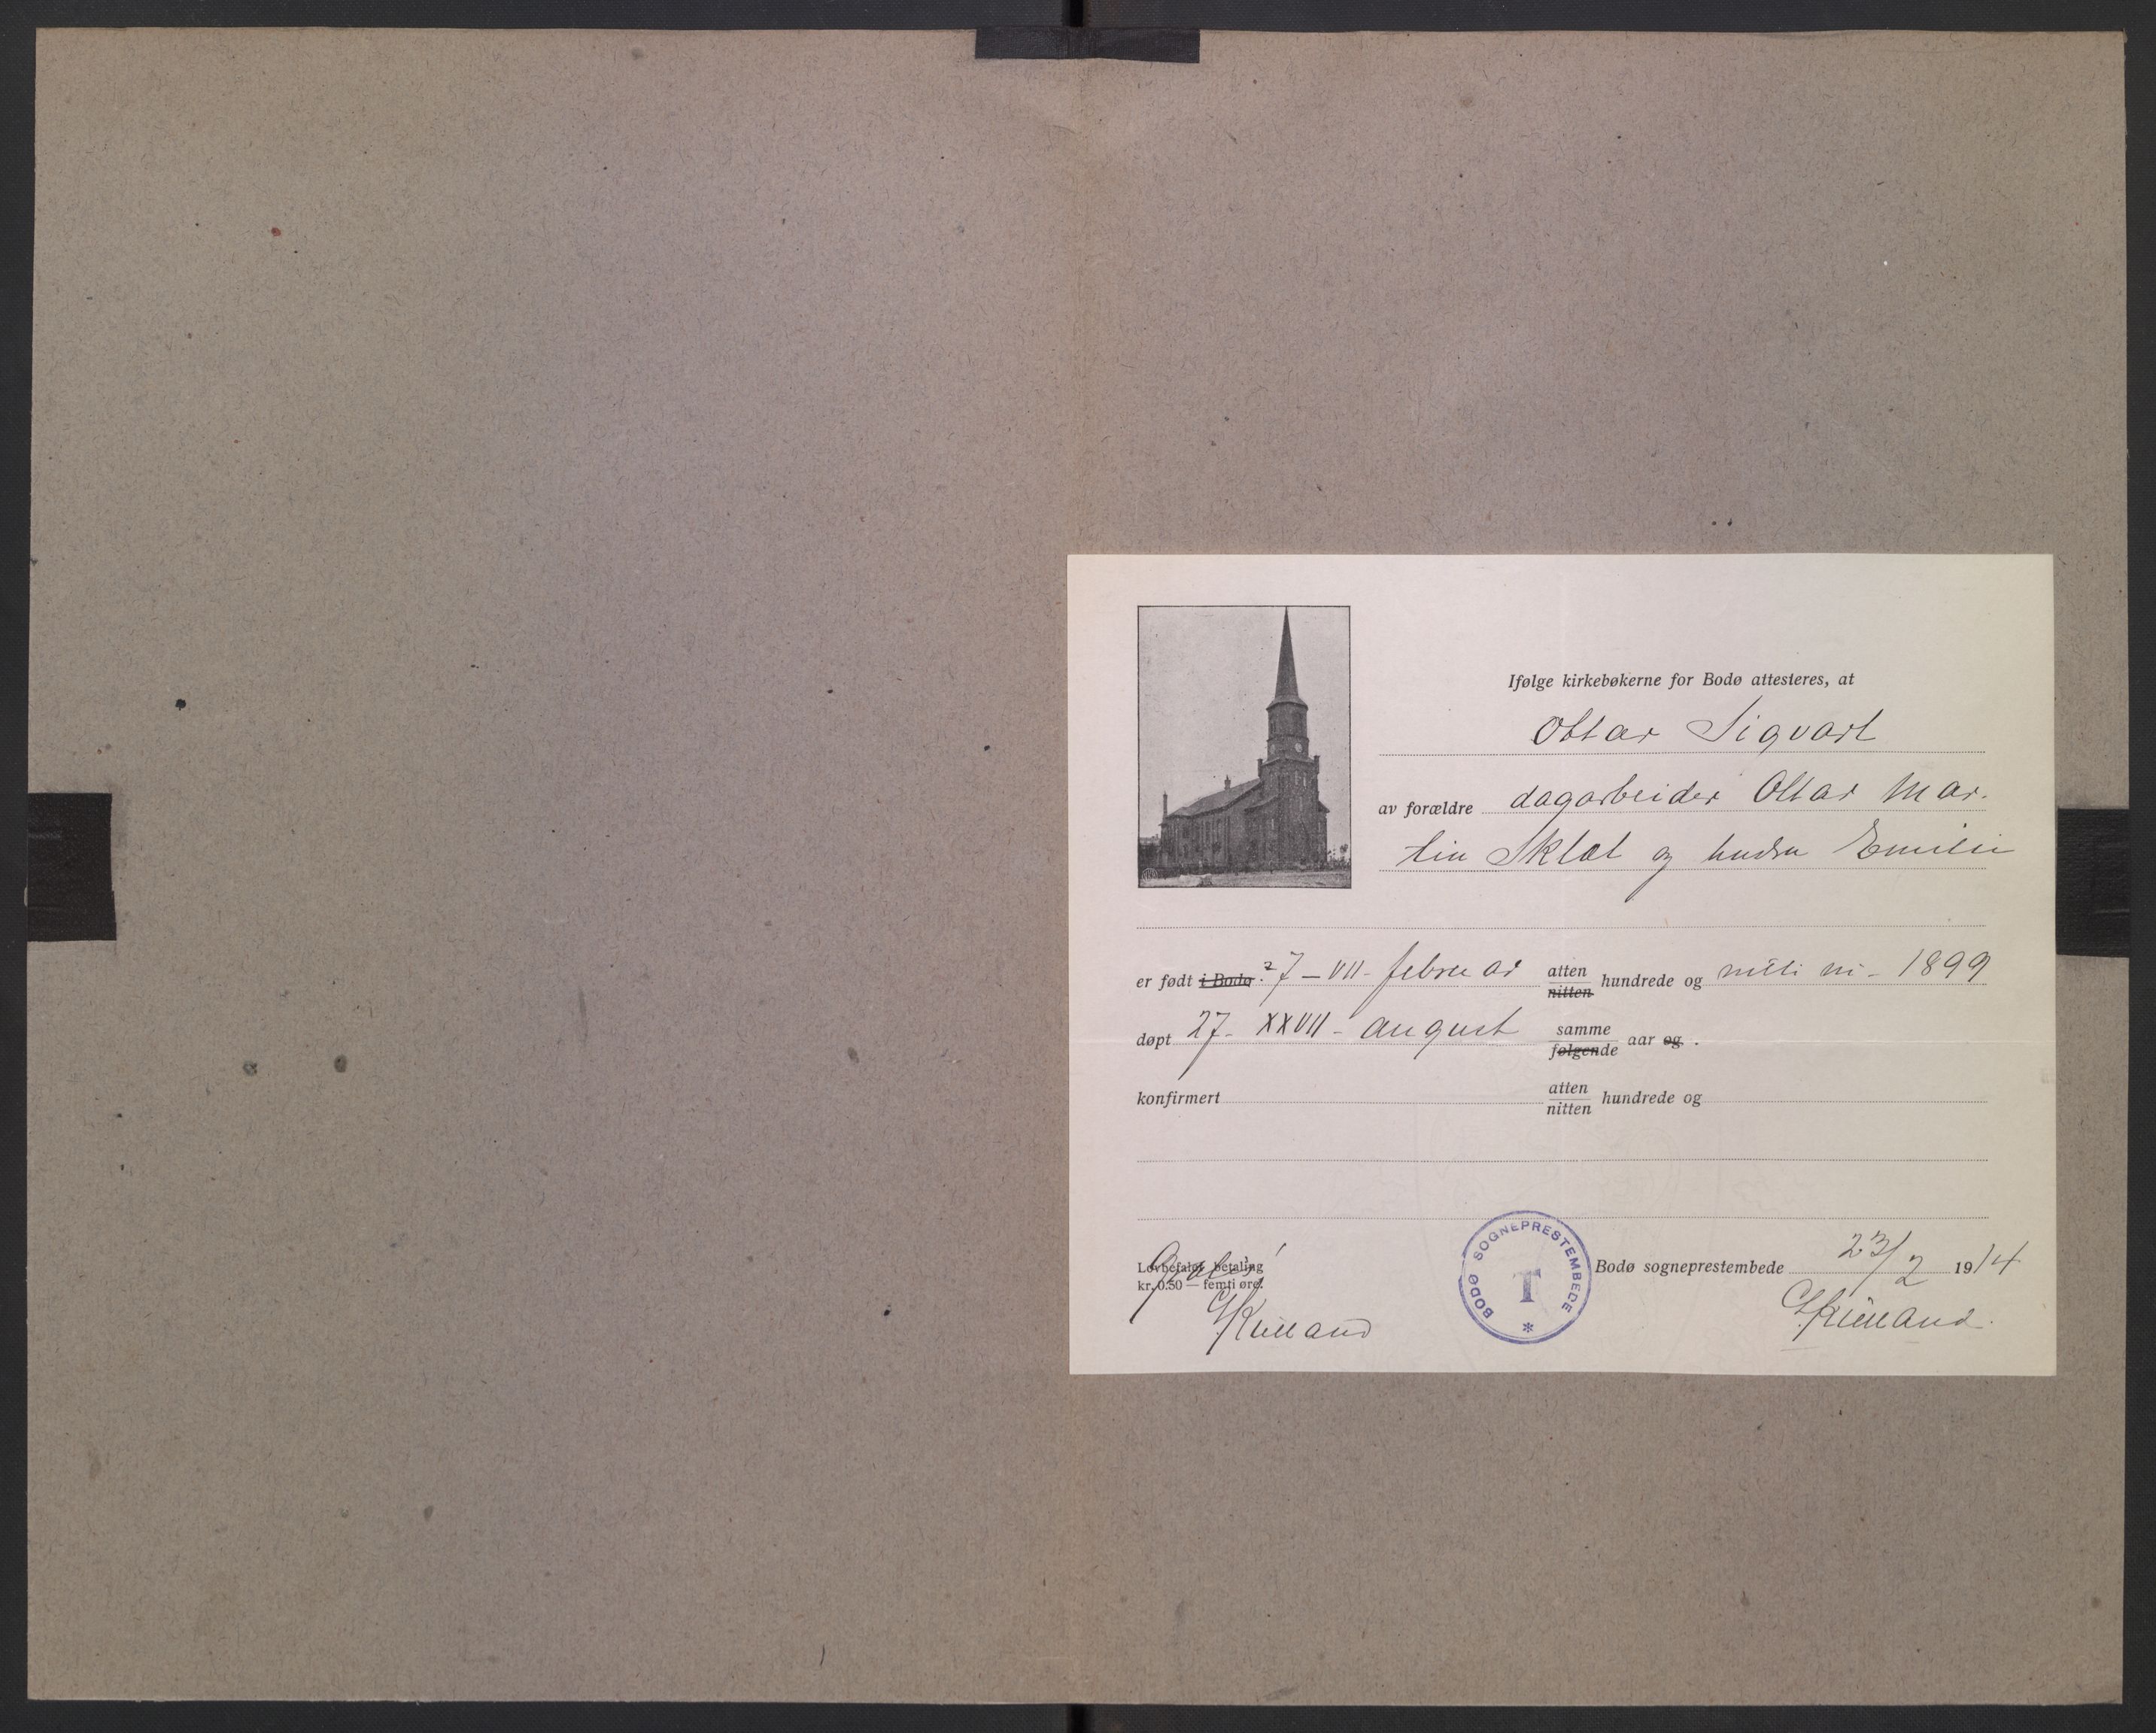 Ifølge kirkebøkerne for Bodø attesteres, at
Ottar Sigvart
av forældre dagarbeider Ottar Mar-
tin Sklet og hustru Emilie
er født i Bodø 7 - VII - februar atten nitten hundrede og nitti ni - 1899
døpt 27 - XXVII - august samme følgende aar og .
konfirmert atten nitten hundrede og
Lovbefalet betaling
kr. 0.50 — femti øre.
Gratis!
Kielland
BODØ SOGNEPRESTEMBEDE
I
*
Bodø sogneprestembede 23/2 1914
Kielland.